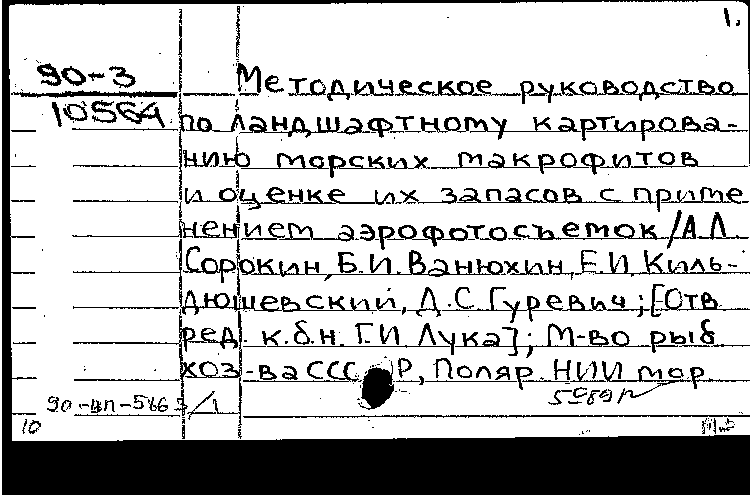 1.
90-3
10564
Методическое руководство
по ландшафтному картирова-
нию морских макрофитов
и оценке их запасов с приме
нением аэрофотосъемок/А.Л.
Сорокин, Б.И. Ванюхин, Е.И. Киль-
дюшевский, Д.С. Гуревич; [Отв
ред. к.б.н. Г.И. Лука]; М-во рыб
хоз-ва СССР, Поляр. НИИ мор.
10